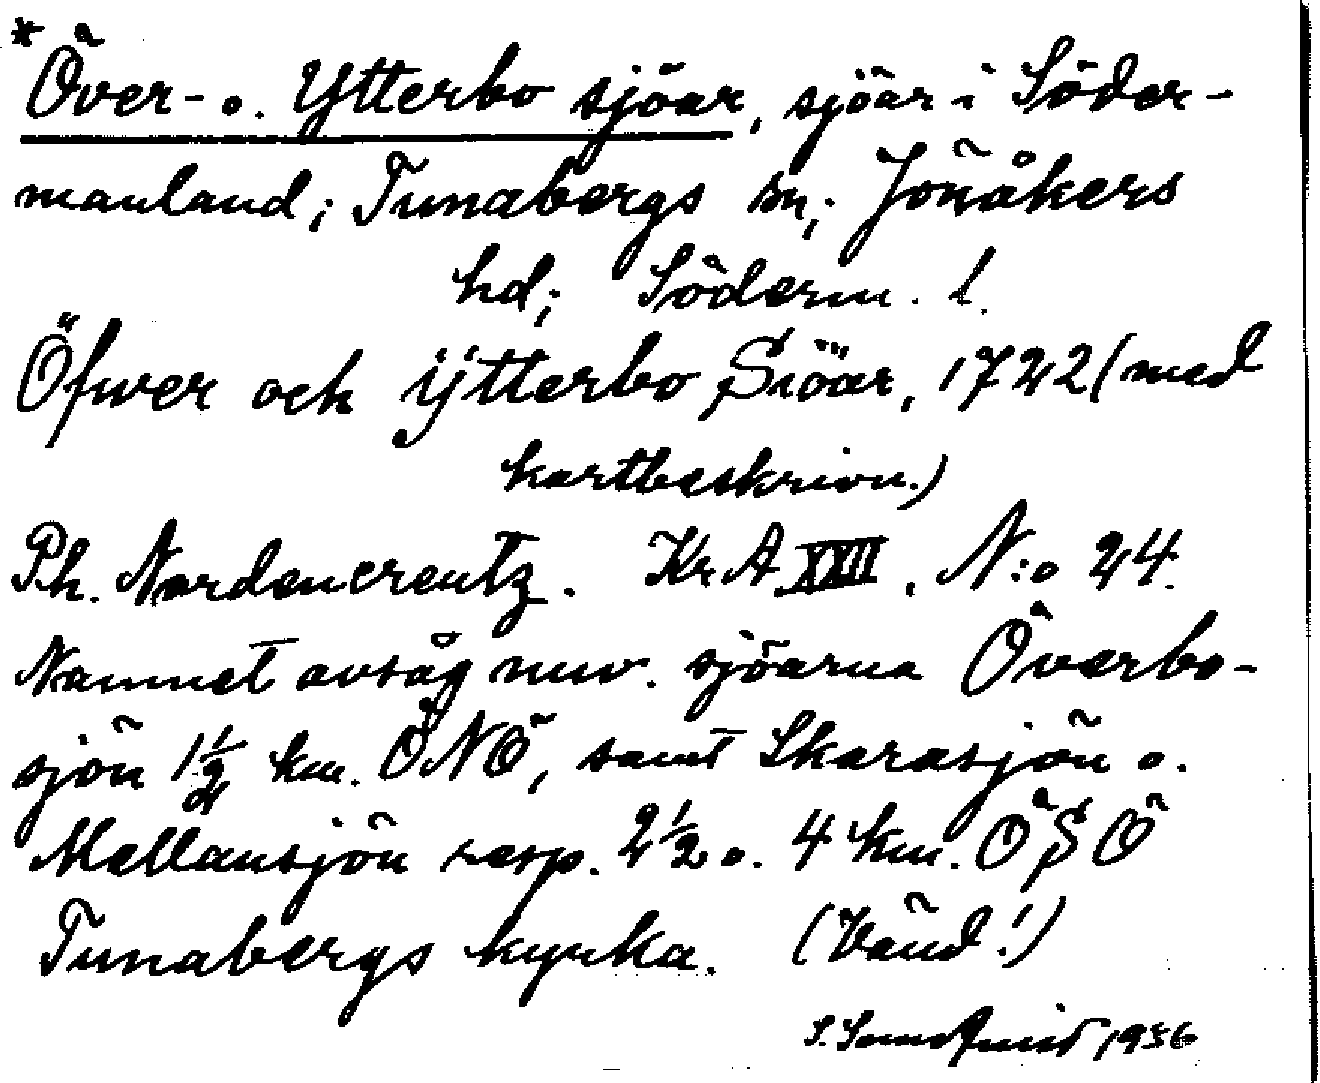 * Över- o. Ytterbo sjöar, sjöar i Söder-
manland; Tunabergs sn; Jönåkers
hd; Söderm. l.
Öfwer och ÿtterbo Siöar, 1722 (med
kartbeskrivn.)
Ph. Nordencreutz. Kr A XXII, N:o 24.
Namnet avsåg nuv. sjöarna Överbo-
sjön 1½ km. ÖNÖ, samt Skarasjön o.
Mellansjön resp. 2½ o. 4 km. ÖSÖ
Tunabergs kyrka. (Vänd!)
S. 1936